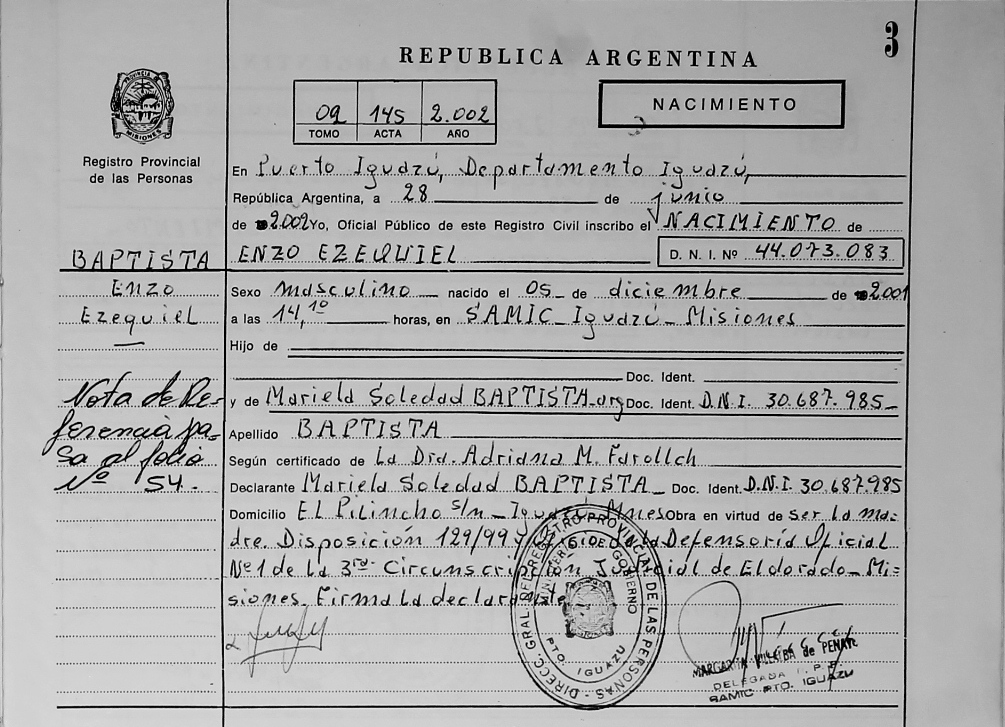 3
REPUBLICA ARGENTINA
PROVINCIA DE
MISIONES
Registro Provincial
de las Personas
09 145 2.002
TOMO ACTA AÑO
NACIMIENTO
En Puerto Iguazú, Departamento Iguazú,
República Argentina, a 28 de junio
de 2.002 Yo, Oficial Público de este Registro Civil inscribo el NACIMIENTO de
ENZO EZEQUIEL D. N. I. Nº 44.073.083
BAPTISTA
Enzo
Ezequiel
Sexo masculino nacido el 05 de diciembre de 2001
a las 14,10 horas, en SAMIC Iguazú - Misiones
Hijo de
Doc. Ident.
y de Mariela Soledad BAPTISTA - arg Doc. Ident. D.N.I. 30.687.985
Apellido BAPTISTA
Según certificado de La Dra. Adriana M.
Declarante Mariela Soledad BAPTISTA Doc. Ident. D.N.I. 30.687.985
Domicilio El Pilincho s/n - Iguazú Mnes Obra en virtud de ser la ma-
dre. Disposición 129/99 de la Defensoría Oficial
Nº 1 de la 3ra Circunscripción Judicial de Eldorado - Mi-
siones. Firma la declarante
Nota de Re-
ferencia pa-
sa al folio
Nº 54.
DIRECC. GRAL. DEL REGISTRO PROVINCIAL DE LAS PERSONAS
GOBIERNO
PTO. IGUAZU
MARGARITA de
DELEGADA
SAMIC PTO. IGUAZU